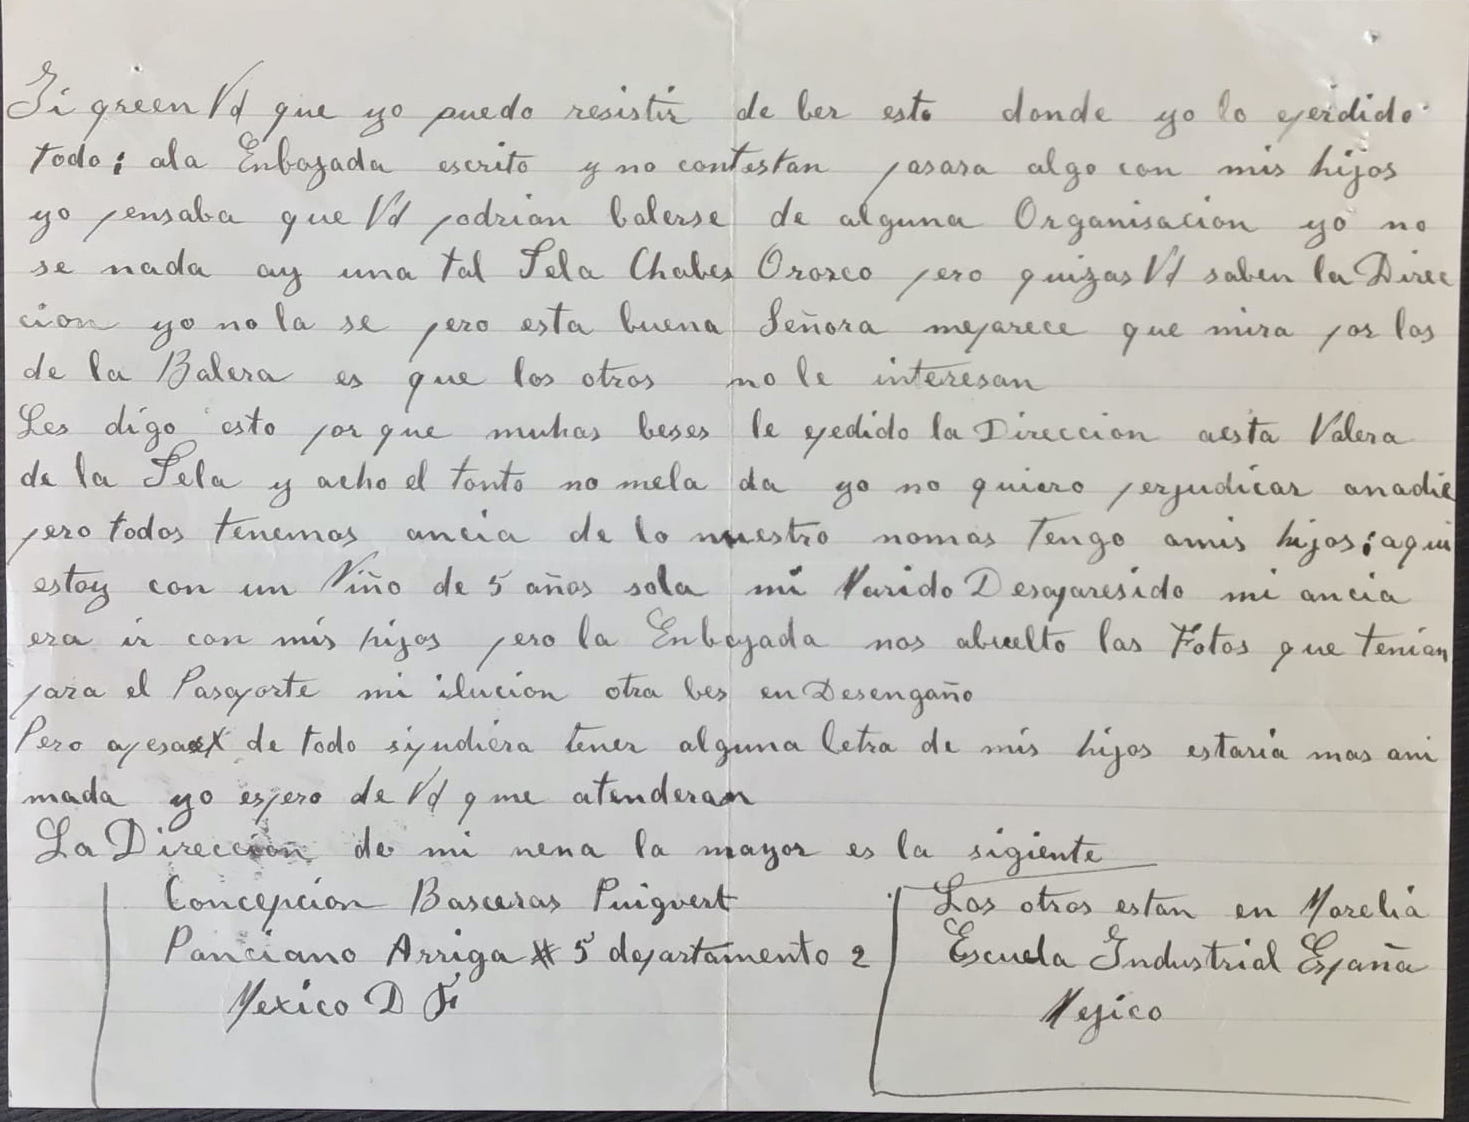 Si green Vd que yo puedo resistir de ber esto donde yo lo eperdido
todo; ala Enbajada escrito y no contestan pasara algo con mis hijos
yo pensaba que Vd podrian balerse de alguna Organisacion yo no
se nada ay una tal Lela Chabes Orozco pero quizas Vd saben la Direc
cion yo no la se pero esta buena Señora meparece que mira por los
de la Balera es que los otros no le interesan
Les digo esto por que muhas beses le epedido la Direccion aesta Valera
de la Lela y acho el tonto no mela da yo no quiero perjudicar anadie
pero todos tenemos ancia de lo nuestro nomas tengo amis hijos; aqui
estoy con un Niño de 5 años sola mi Marido Desaparesido mi ancia
era ir con mis hijos pero la Enbajada nos abuelto las Fotos que tenian
para el Pasaporte mi ilucion otra bes en Desengaño
Pero apesar de todo sipudiera tener alguna letra de mis hijos estaria mas ani
mada yo espero de Vd que atenderan
La Direccion de mi nena la mayor es la sigiente
Concepcion Basceras Puigvert
Panciano Arriga # 5 departamento 2
Mexico D F
Los otros estan en Morelia
Escuela Industrial España
Mejico